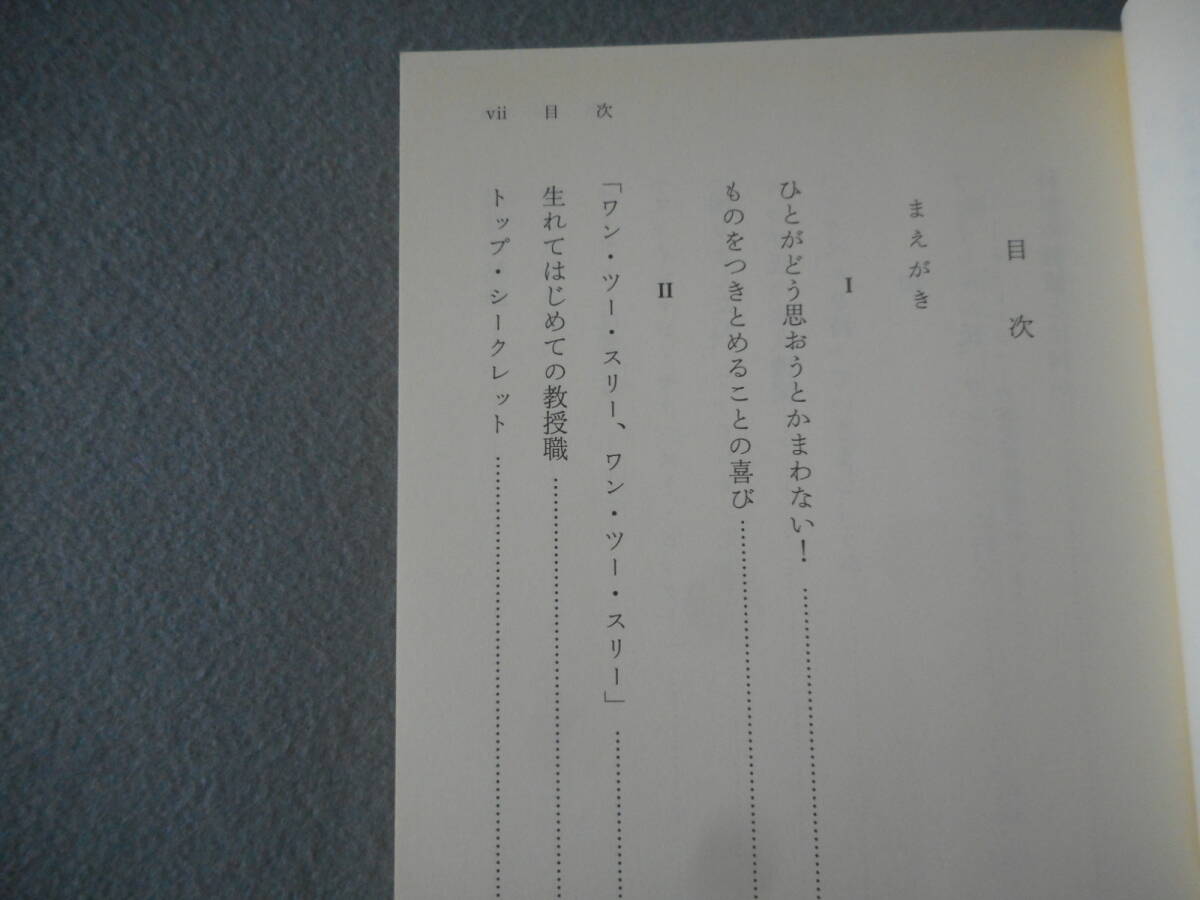 目次
まえがき
I
ひとがどう思おうとかまわない！……………………
ものをつきとめることの喜び……………………
II
「ワン・ツー・スリー、ワン・ツー・スリー」……………
生れてはじめての教授職……………………
トップ・シークレット……………………
vii 目次